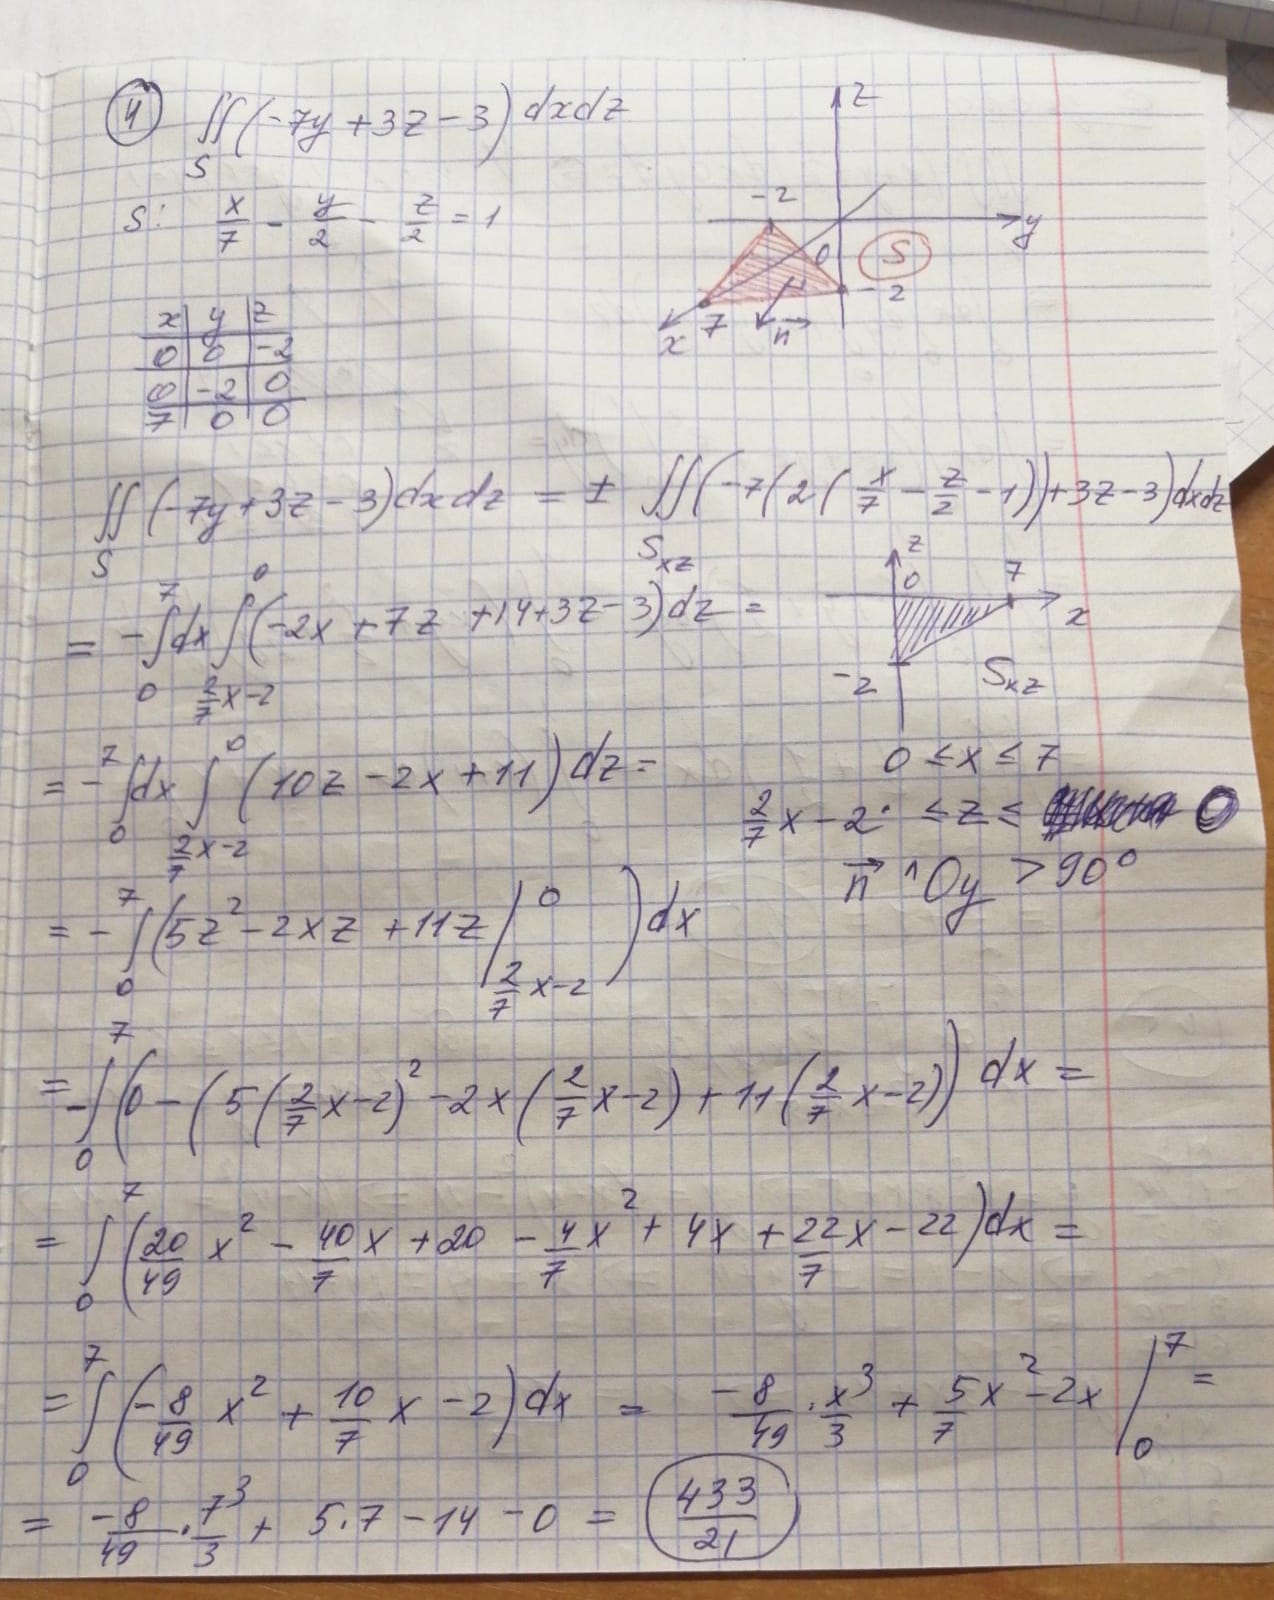 4) ∬_S (-7y + 3z - 3) dxdz
S: x/7 - y/2 - z/2 = 1
z
-2
y
0
S
-2
7
n⃗
x
x | y | z
0 | 0 | -2
0 | -2 | 0
7 | 0 | 0
∬_S (-7y + 3z - 3) dxdz = ± ∬_{S_xz} (-7(2(x/7 - z/2 - 1)) + 3z - 3) dxdz
= -∫_0^7 dx ∫_{2/7 x - 2}^0 (-2x + 7z + 14 + 3z - 3) dz =
z
0
7
x
-2
S_xz
= -∫_0^7 dx ∫_{2/7 x - 2}^0 (10z - 2x + 11) dz =
0 ≤ x ≤ 7
2/7 x - 2 ≤ z ≤ 0
n⃗ ^ Oy > 90°
= -∫_0^7 (5z² - 2xz + 11z |_{2/7 x - 2}^0) dx
= -∫_0^7 (0 - (5(2/7 x - 2)² - 2x(2/7 x - 2) + 11(2/7 x - 2)) dx =
= ∫_0^7 (20/49 x² - 40/7 x + 20 - 4/7 x² + 4x + 22/7 x - 22) dx =
= ∫_0^7 (-8/49 x² + 10/7 x - 2) dx = -8/49 · x³/3 + 5/7 x² - 2x |_0^7 =
= -8/49 · 7³/3 + 5·7 - 14 - 0 = 433/21